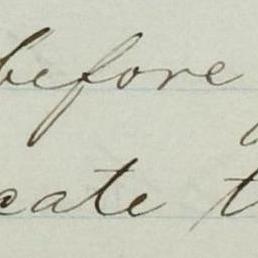 before
cate t